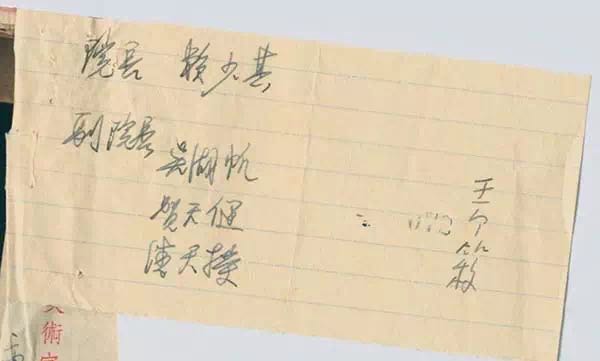 院长 赖少其
副院长
吴湖帆
贺天健
王个簃
術